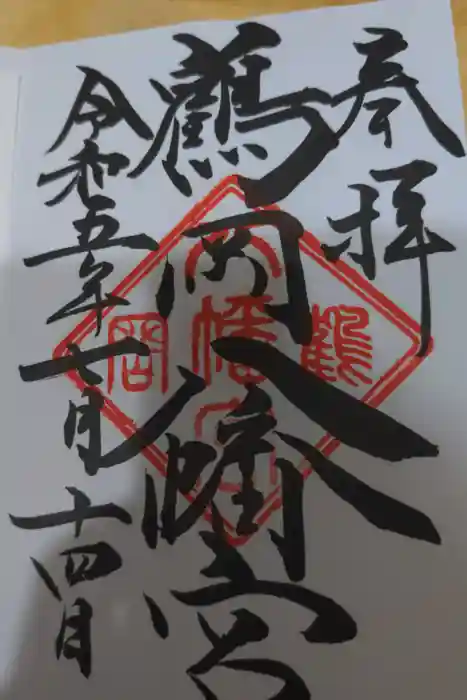 奉拝
鶴岡八幡宮
令和五年七月十四日
鶴
八幡宮
岡